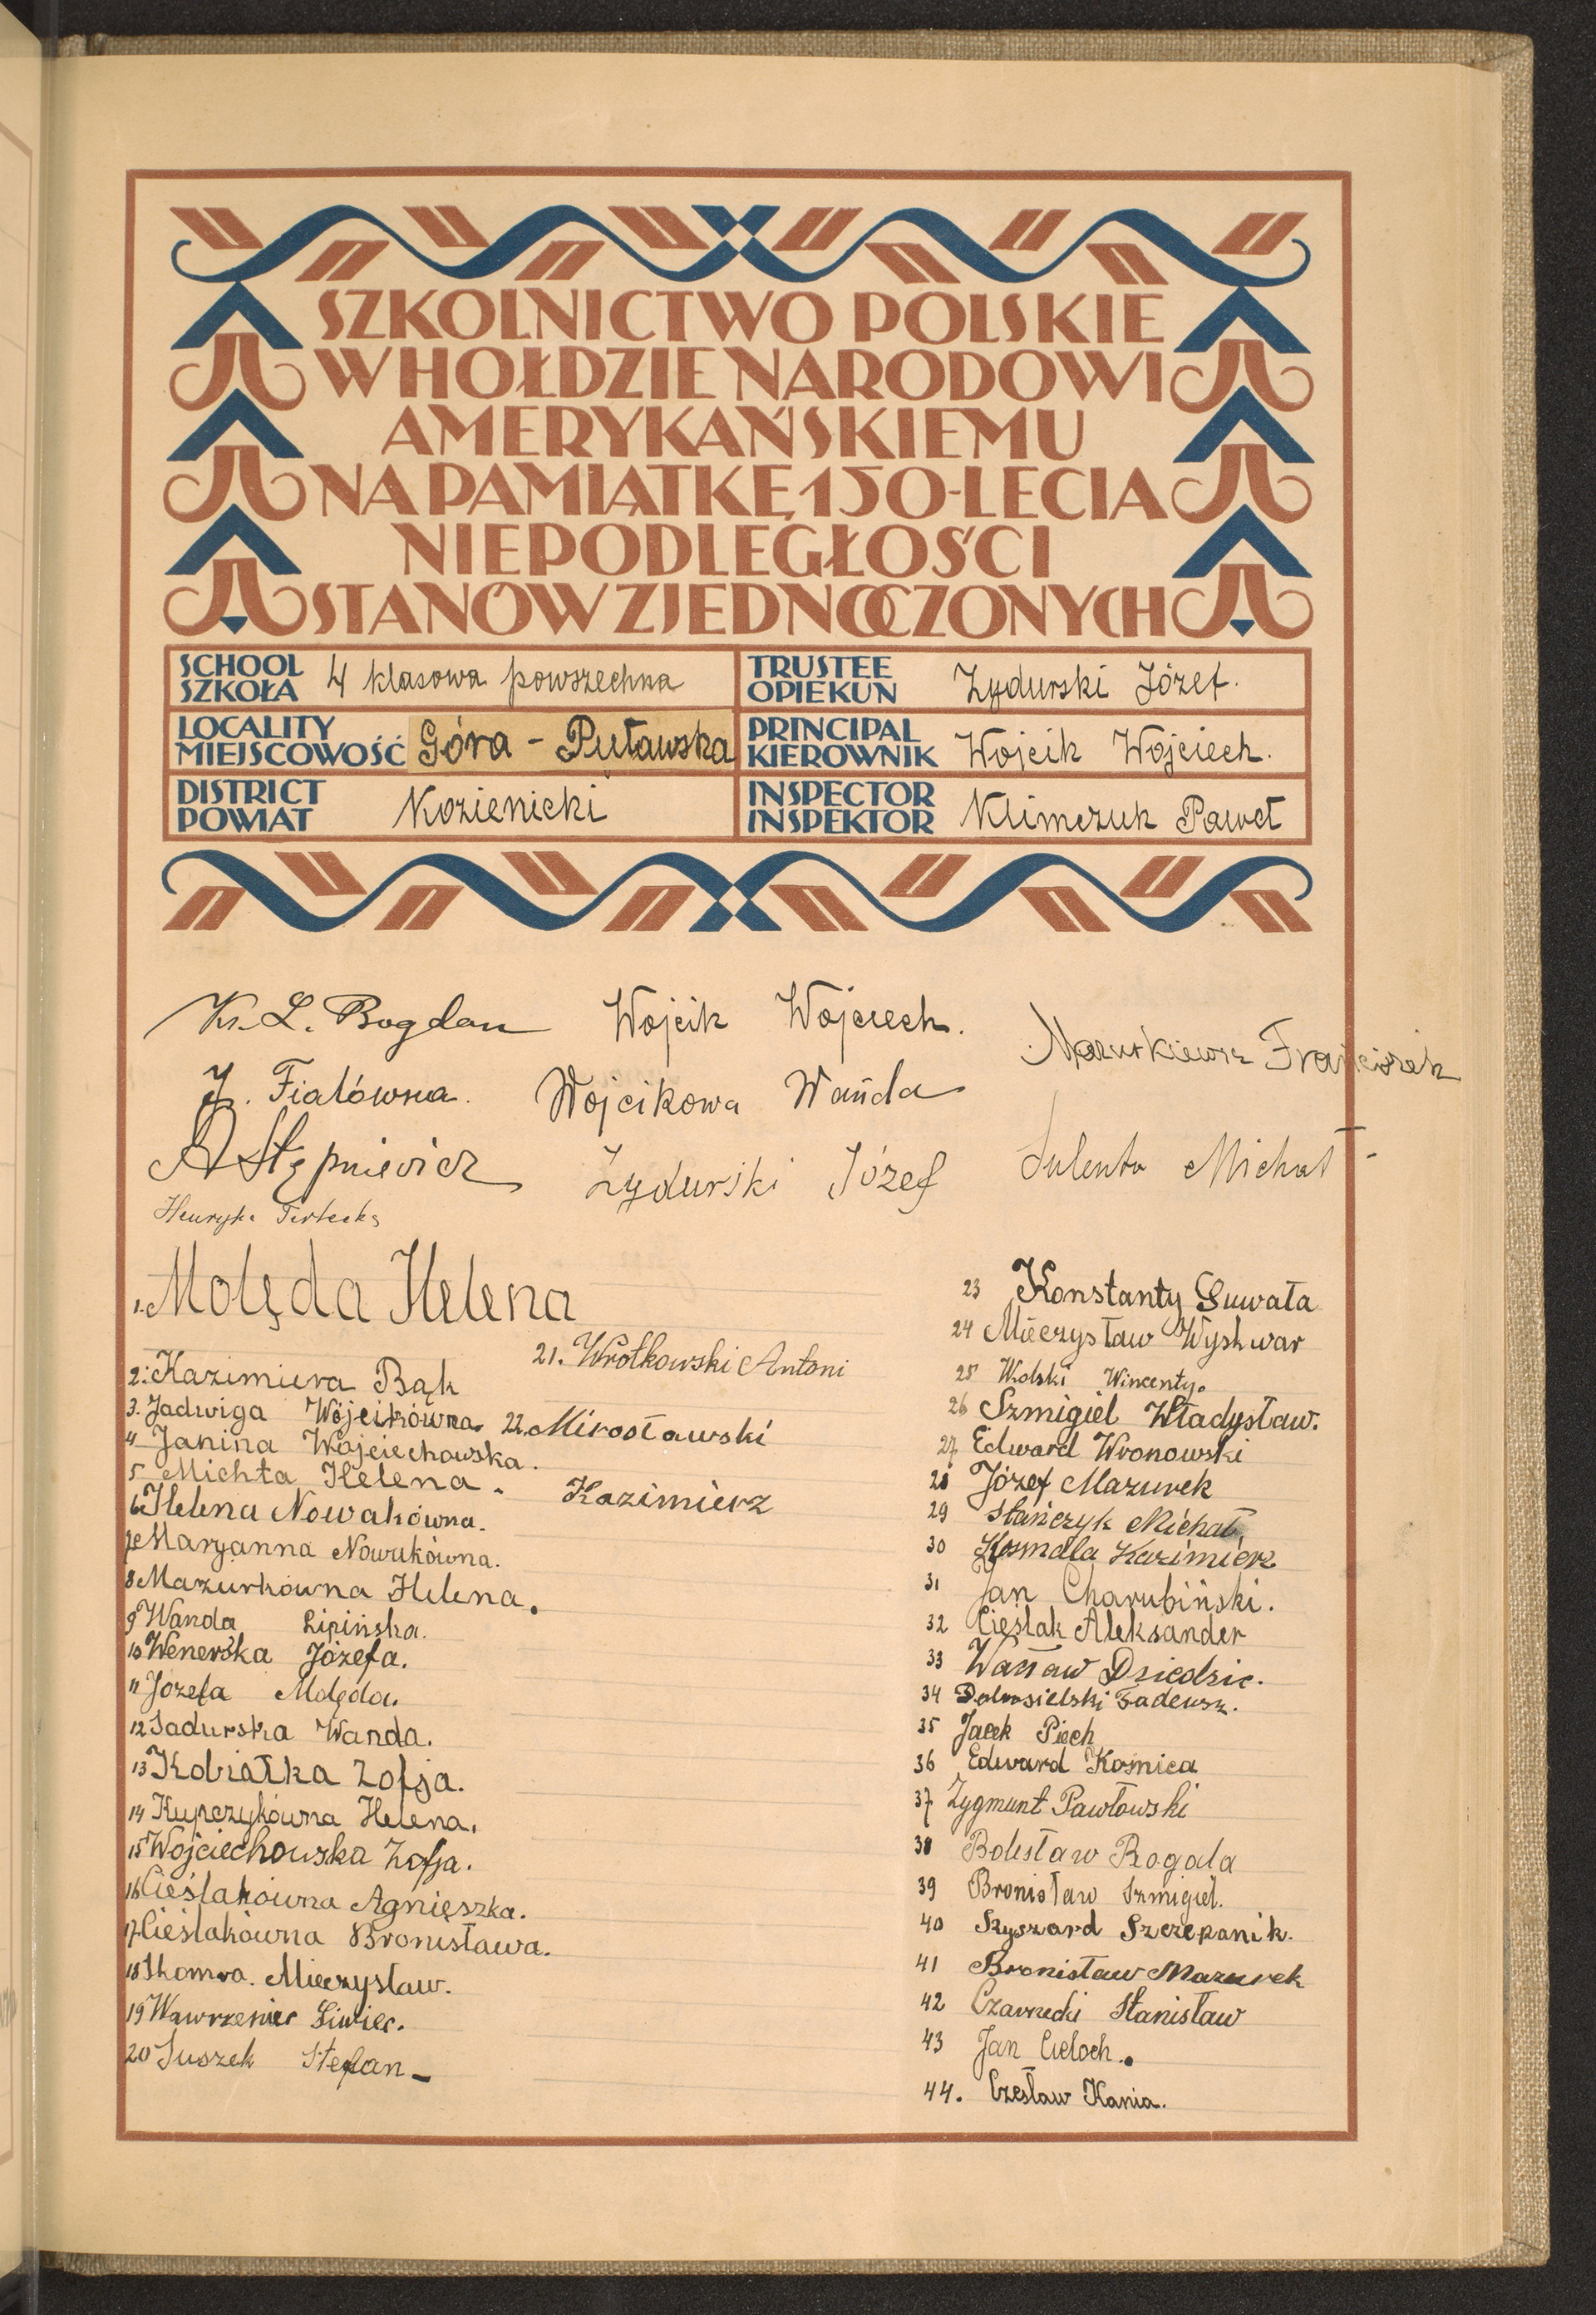 SZKOLNICTWO POLSKIE
W HOŁDZIE NARODOWI
AMERYKAŃSKIEMU
NA PAMIĄTKĘ 150-LECIA
NIEPODLEGŁOŚCI
STANÓW ZJEDNOCZONYCH
SCHOOL
SZKOŁA 4 klasowa powszechna
TRUSTEE
OPIEKUN Żydurski Józef.
LOCALITY
MIEJSCOWOŚĆ Góra - Puławska
PRINCIPAL
KIEROWNIK Wojcik Wojciech.
DISTRICT
POWIAT Kozienicki
INSPECTOR
INSPEKTOR Klimczuk Paweł
Ks. L. Bogdan
Wojcik Wojciech.
Mazurkiewicz Franciszek
J. Fiałówna.
Wojcikowa Wanda
A Stępniewicz
Żydurski Józef
Sulenta Michał
Henryka
1. Molęda Helena
2. Kazimiera Bąk
3. Jadwiga Wójcikówna.
4 Janina Wojciechowska.
5 Michta Helena.
6 Helena Nowakówna.
7 Maryanna Nowakówna.
8 Mazurkówna Helena.
9 Wanda Lipińska.
10 Wenerska Józefa.
11 Józefa Molęda.
12 Sadurska Wanda.
13 Kobiałka Zofja.
14 Kupczykówna Helena.
15 Wojciechowska Zofja.
16 Cieślakówna Agnieszka.
17 Cieślakówna Bronisława.
18 Skomra. Mieczysław.
19 Wawrzeniec Siwiec.
20 Suszek Stefan
21. Wrotkowski Antoni
22. Mirosławski
Kazimierz
23 Konstanty Suwała
24 Mieczysław Wyshwar
25 Wolski Wincenty.
26 Szmigiel Władysław.
27 Edward Wronowski
28 Józef Mazurek
29 Stańczyk Michał,
30 Kosmala Kazimierz
31 Jan Charubiński.
32 Cieślak Aleksander
33 Wacław Dziedzic.
34 Tadeusz.
35 Jacek Piech
36 Edward Kośnica
37 Zygmunt Pawłowski
38 Bolesław Rogala
39 Bronisław Szmigiel.
40 Ryszard Szczepanik.
41 Bronisław Mazurek
42 Czarnecki Stanisław
43 Jan Cieloch.
44. Czesław Kania.